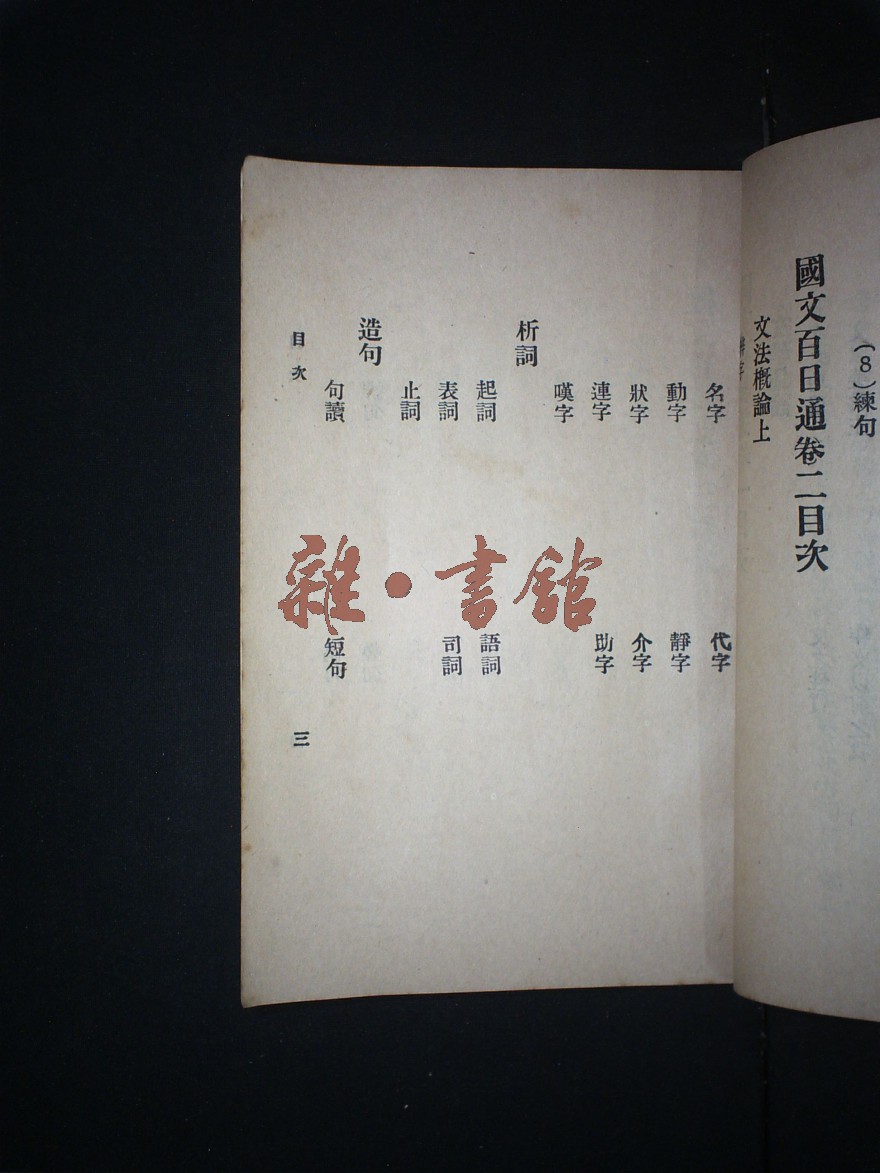 （8）練句
國文百日通卷二目次
文法概論上
名字　代字
動字　靜字
狀字　介字
連字　助字
嘆字
析詞
起詞　語詞
表詞　司詞
止詞
造句
句讀　短句
目次　三
雜・書館